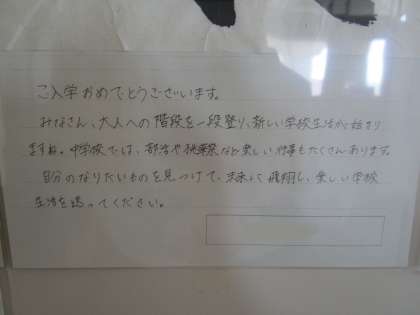 ご入学おめでとうございます。
みなさん、大人への階段を一段登り、新しい学校生活が始まり
ますね。中学校では、部活や桃稜祭など楽しい行事もたくさんあります。
自分のなりたいものを見つけて、未来に飛翔し、楽しい学校
生活を送ってください。